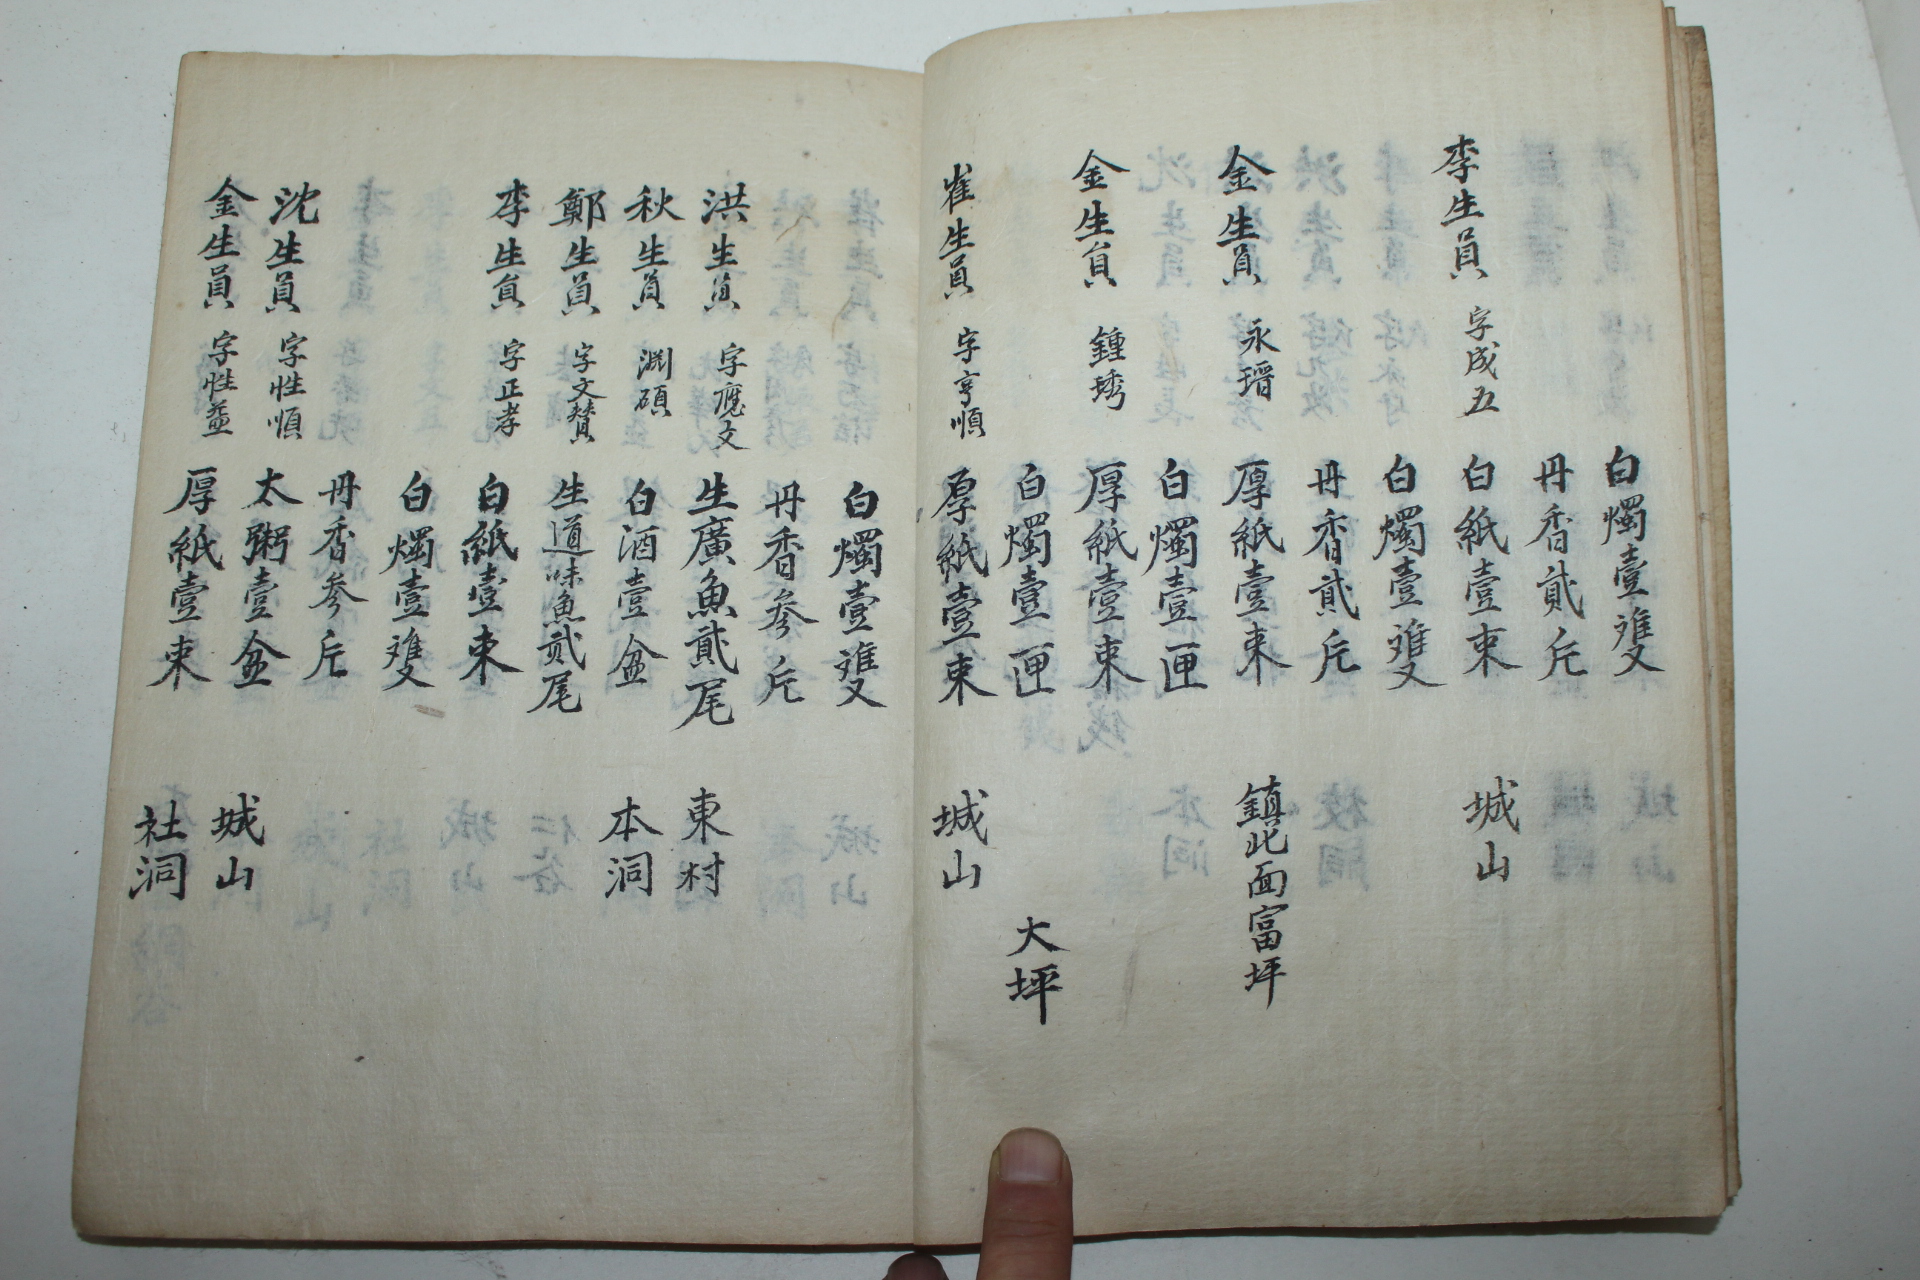 白燭壹雙
丹香貳斤
李生員 字成五 白紙壹束 城山
白燭壹雙
丹香貳斤
金生員 永瑨 厚紙壹束 鎮北面富坪
白燭壹匣
金生員 鍾琇 厚紙壹束
白燭壹匣 大坪
崔生員 字亨順 厚紙壹束 城山
白燭壹雙
丹香參斤
洪生員 字應文 生廣魚貳尾 東村
秋生員 淵碩 白酒壹盆 本洞
鄭生員 字文贊 生道味魚貳尾
李生員 字正孝 白紙壹束
白燭壹雙
丹香參斤
沈生員 字性順 太粥壹盆 城山
金生員 字性益 厚紙壹束 社洞